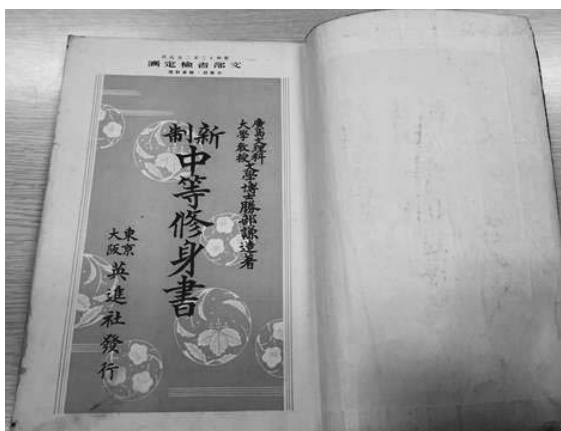 文部省檢定濟
廣島文理科
大學教授
文學博士勝部謙造著
新制
中等修身書
東京
大阪
英進社發行